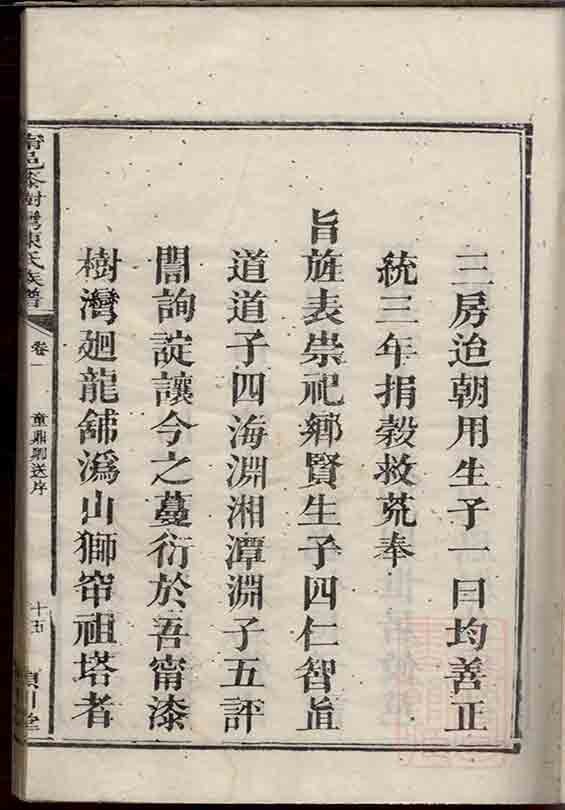 三房迨朝用生子一曰均善正
統三年捐穀救荒奉
旨旌表崇祀鄉賢生子四仁智直
道道子四海淵湘潭淵子五評
誾詢諚讓今之蔓衍於吾甯漆
樹灣廻龍舖溈山獅帘祖塔者
甯邑漆樹灣陳氏族譜
卷一
童鼎卿送序
十五
潁川堂